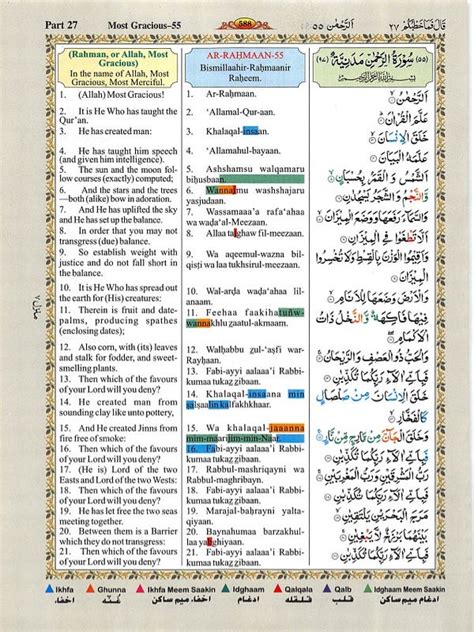 Part 27
Most Gracious—55
588
اَلرَّحْمٰنُ ٥٥
قَالَ فَمَا خَطْبُكُمْ ٢٧
(Rahman, or Allah, Most
Gracious)
In the name of Allah, Most
Gracious, Most Merciful.
1. (Allah) Most Gracious!
2. It is He Who has taught the
Qur'an.
3. He has created man:
4. He has taught him speech
(and given him intelligence).
5. The sun and the moon fol-
low courses (exactly) computed;
6. And the stars and the trees
—both (alike) bow in adoration.
7. And He has uplifted the sky
and He has set up the balance.
8. In order that you may not
transgress (due) balance.
9. So establish weight with
justice and do not fall short in
the balance.
10. It is He Who has spread out
the earth for (His) creatures:
11. Therein is fruit and date-
palms, producing spathes
(enclosing dates);
12. Also corn, with (its) leaves
and stalk for fodder, and sweet-
smelling plants.
13. Then which of the favours
of your Lord will you deny?
14. He created man from
sounding clay like unto pottery,
15. And He created Jinns from
fire free of smoke:
16. Then which of the favours
of your Lord will you deny?
17. (He is) Lord of the two
Easts and Lord of the two Wests:
18. Then which of the favours
of your Lord will you deny?
19. He has let free the two seas
meeting together.
20. Between them is a Barrier
which they do not transgress:
21. Then which of the favours
of your Lord will you deny?
AR-RAḤMAAN-55
Bismillaahir-Raḥmaanir
Raḥeem.
1. Ar-Raḥmaan.
2. ‘Allamal-Qur-aan.
3. Khalaqal-insaan.
4. ‘Allamahul-bayaan.
5. Ashshamsu walqamaru
biḥusbaan.
6. Wannajmu washshajaru
yasjudaan.
7. Wassamaaa'a rafa‘ahaa
wa waḍa‘al-Meezaan.
8. Allaa taṭghaw fil-meezaan.
9. Wa aqeemul-wazna bil-
qisṭi wa laa tukhsirul-meezaan.
10. Wal-arḍa waḍa‘ahaa lil-
anaam.
11. Feehaa faakihatuñw-
wannakhlu zaatul-akmaam.
12. Walḥabbu zul-‘aṣfi war-
Rayḥaan.
13. Fabi-ayyi aalaaa'i Rabbi-
kumaa tukaz zibaan.
14. Khalaqal-insaana min
ṣalṣaalin kalfakhkhaar.
15. Wa khalaqal-jaaanna
mim-maarijim-min-Naar.
16. Fabi-ayyi aalaaa'i Rabbi-
kumaa tukaz zibaan.
17. Rabbul-mashriqayni wa
Rabbul-maghribayn.
18. Fabi-ayyi aalaaa'i Rabbi-
kumaa tukaz zibaan.
19. Marajal-baḥrayni yalta-
qiyaan.
20. Baynahumaa barzakhul-
laa yabghiyaan.
21. Fabi-ayyi aalaaa'i Rabbi-
kumaa tukaz zibaan.
(٥٥) سُوْرَةُ الرَّحْمٰنِ مَدَنِيَّةٌ (٩٧)
بِسْمِ اللهِ الرَّحْمٰنِ الرَّحِيْمِ
اَلرَّحْمٰنُ
عَلَّمَ الْقُرْاٰنَ
خَلَقَ الْاِنْسَانَ
عَلَّمَهُ الْبَيَانَ
اَلشَّمْسُ وَالْقَمَرُ بِحُسْبَانٍ
وَّالنَّجْمُ وَالشَّجَرُ يَسْجُدٰنِ
وَالسَّمَآءَ رَفَعَهَا وَوَضَعَ الْمِيْزَانَ
اَلَّا تَطْغَوْا فِى الْمِيْزَانِ
وَاَقِيْمُوا الْوَزْنَ بِالْقِسْطِ وَلَا تُخْسِرُوا
الْمِيْزَانَ
وَالْاَرْضَ وَضَعَهَا لِلْاَنَامِ
فِيْهَا فَاكِهَةٌ وَّالنَّخْلُ ذَاتُ
الْاَكْمَامِ
وَالْحَبُّ ذُو الْعَصْفِ وَالرَّيْحَانُ
فَبِاَيِّ اٰلَآءِ رَبِّكُمَا تُكَذِّبٰنِ
خَلَقَ الْاِنْسَانَ مِنْ صَلْصَالٍ
كَالْفَخَّارِ
وَخَلَقَ الْجَآنَّ مِنْ مَّارِجٍ مِّنْ نَّارٍ
فَبِاَيِّ اٰلَآءِ رَبِّكُمَا تُكَذِّبٰنِ
رَبُّ الْمَشْرِقَيْنِ وَرَبُّ الْمَغْرِبَيْنِ
فَبِاَيِّ اٰلَآءِ رَبِّكُمَا تُكَذِّبٰنِ
مَرَجَ الْبَحْرَيْنِ يَلْتَقِيٰنِ
بَيْنَهُمَا بَرْزَخٌ لَّا يَبْغِيٰنِ
فَبِاَيِّ اٰلَآءِ رَبِّكُمَا تُكَذِّبٰنِ
Ikhfa Ghunna Ikhfa Meem Saakin Idghaam Qalqala Qalb Idghaam Meem Saakin
اخفاء غُنّه اخفاء میم ساکن ادغام قلقله قلب ادغام میم ساکن